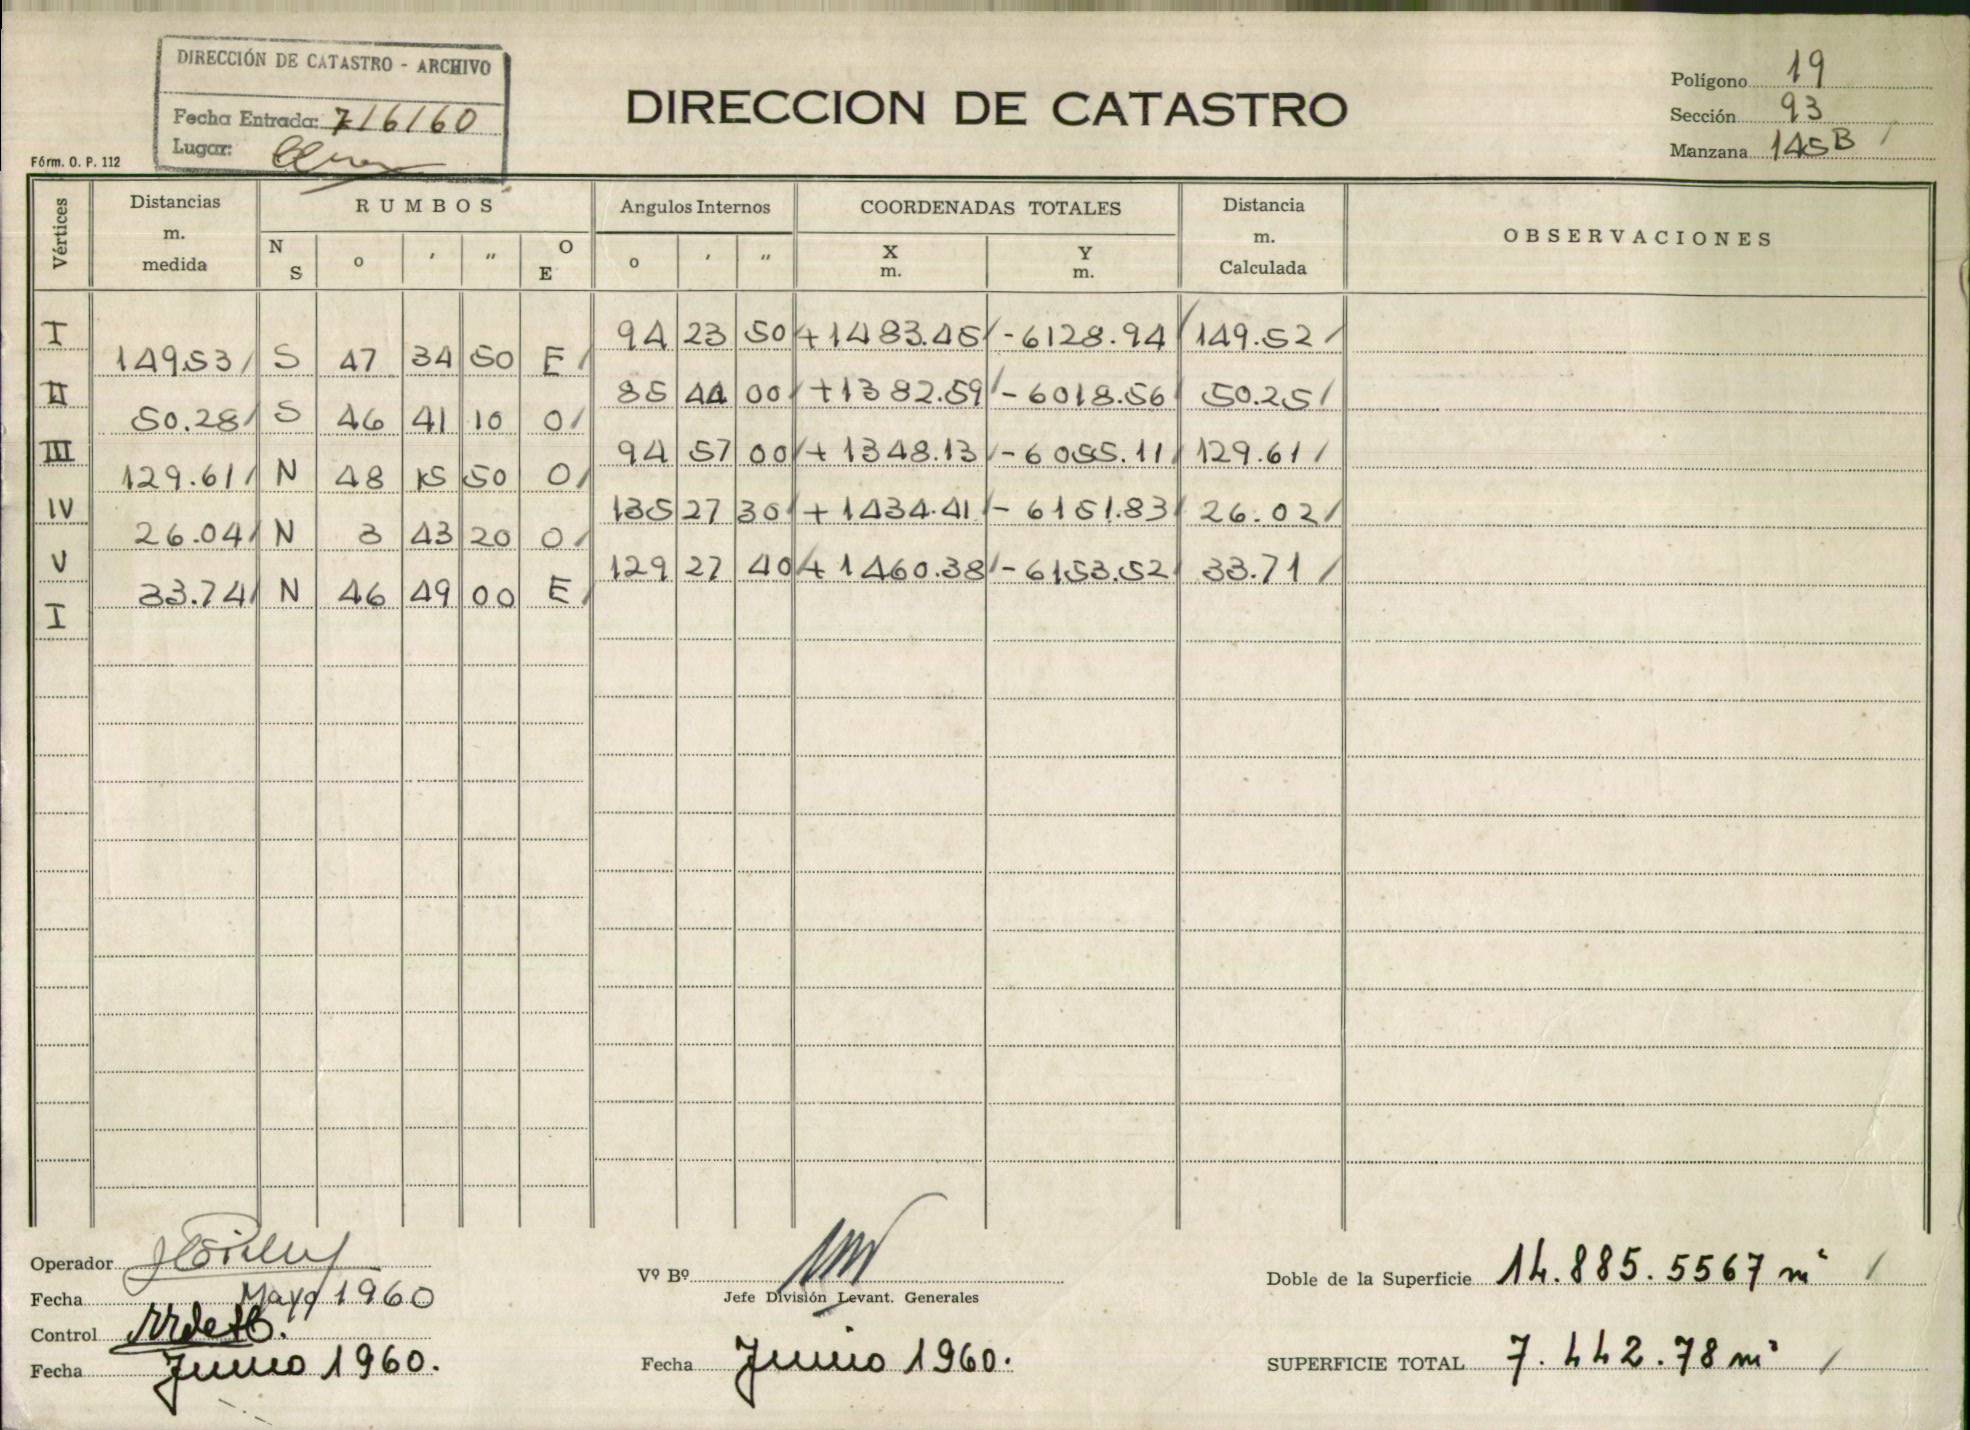 DIRECCIÓN DE CATASTRO - ARCHIVO
Fecha Entrada: 7/6/60
Lugar:
Fórm. O. P. 112
DIRECCION DE CATASTRO
Polígono 19
Sección 93
Manzana 145B /
Vértices Distancias m. medida RUMBOS Angulos Internos COORDENADAS TOTALES Distancia m. Calculada OBSERVACIONES
N S o ' " O E o ' " X m. Y m.
I 94 23 50 +1483.45 / -6128.94 / 149.52 /
149.53 / S 47 34 50 E /
II 85 44 00 / +1382.59 / -6018.56 / 50.25 /
50.28 / S 46 41 10 O /
III 94 57 00 / +1348.13 / -6055.11 / 129.61 /
129.61 / N 48 15 50 O /
IV 135 27 30 / +1434.41 / -6151.83 / 26.02 /
26.04 / N 3 43 20 O /
V 129 27 40 / +1460.38 / -6153.52 / 33.71 /
33.74 / N 46 49 00 E /
I
Operador
Fecha Mayo 1960
Control
Fecha Junio 1960.
Vº Bº
Jefe División Levant. Generales
Fecha Junio 1960.
Doble de la Superficie 14.885.5567 m² /
SUPERFICIE TOTAL 7.442.78 m² /